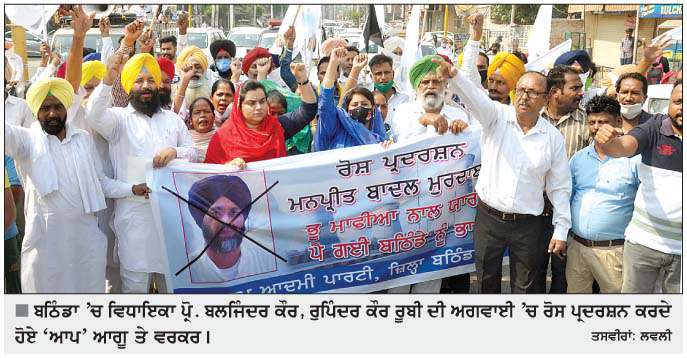 ਰੋਸ ਪ੍ਰਦਰਸ਼ਨ
ਮਨਪ੍ਰੀਤ ਬਾਦਲ ਮੁਰਦਾਬਾ
ਭੂ ਮਾਫੀਆ ਨਾਲ ਯਾਰੀ
ਪੈ ਗਈ ਬਠਿੰਡੇ ਨੂੰ ਭਾ
ਆਦਮੀ ਪਾਰਟੀ, ਜ਼ਿਲ੍ਹਾ ਬਠਿੰਡ
ਬਠਿੰਡਾ ’ਚ ਵਿਧਾਇਕਾ ਪ੍ਰੋ. ਬਲਜਿੰਦਰ ਕੌਰ, ਰੁਪਿੰਦਰ ਕੌਰ ਰੂਬੀ ਦੀ ਅਗਵਾਈ ’ਚ ਰੋਸ ਪ੍ਰਦਰਸ਼ਨ ਕਰਦੇ
ਹੋਏ ‘ਆਪ’ ਆਗੂ ਤੇ ਵਰਕਰ।
ਤਸਵੀਰਾਂ: ਲਵਲੀ